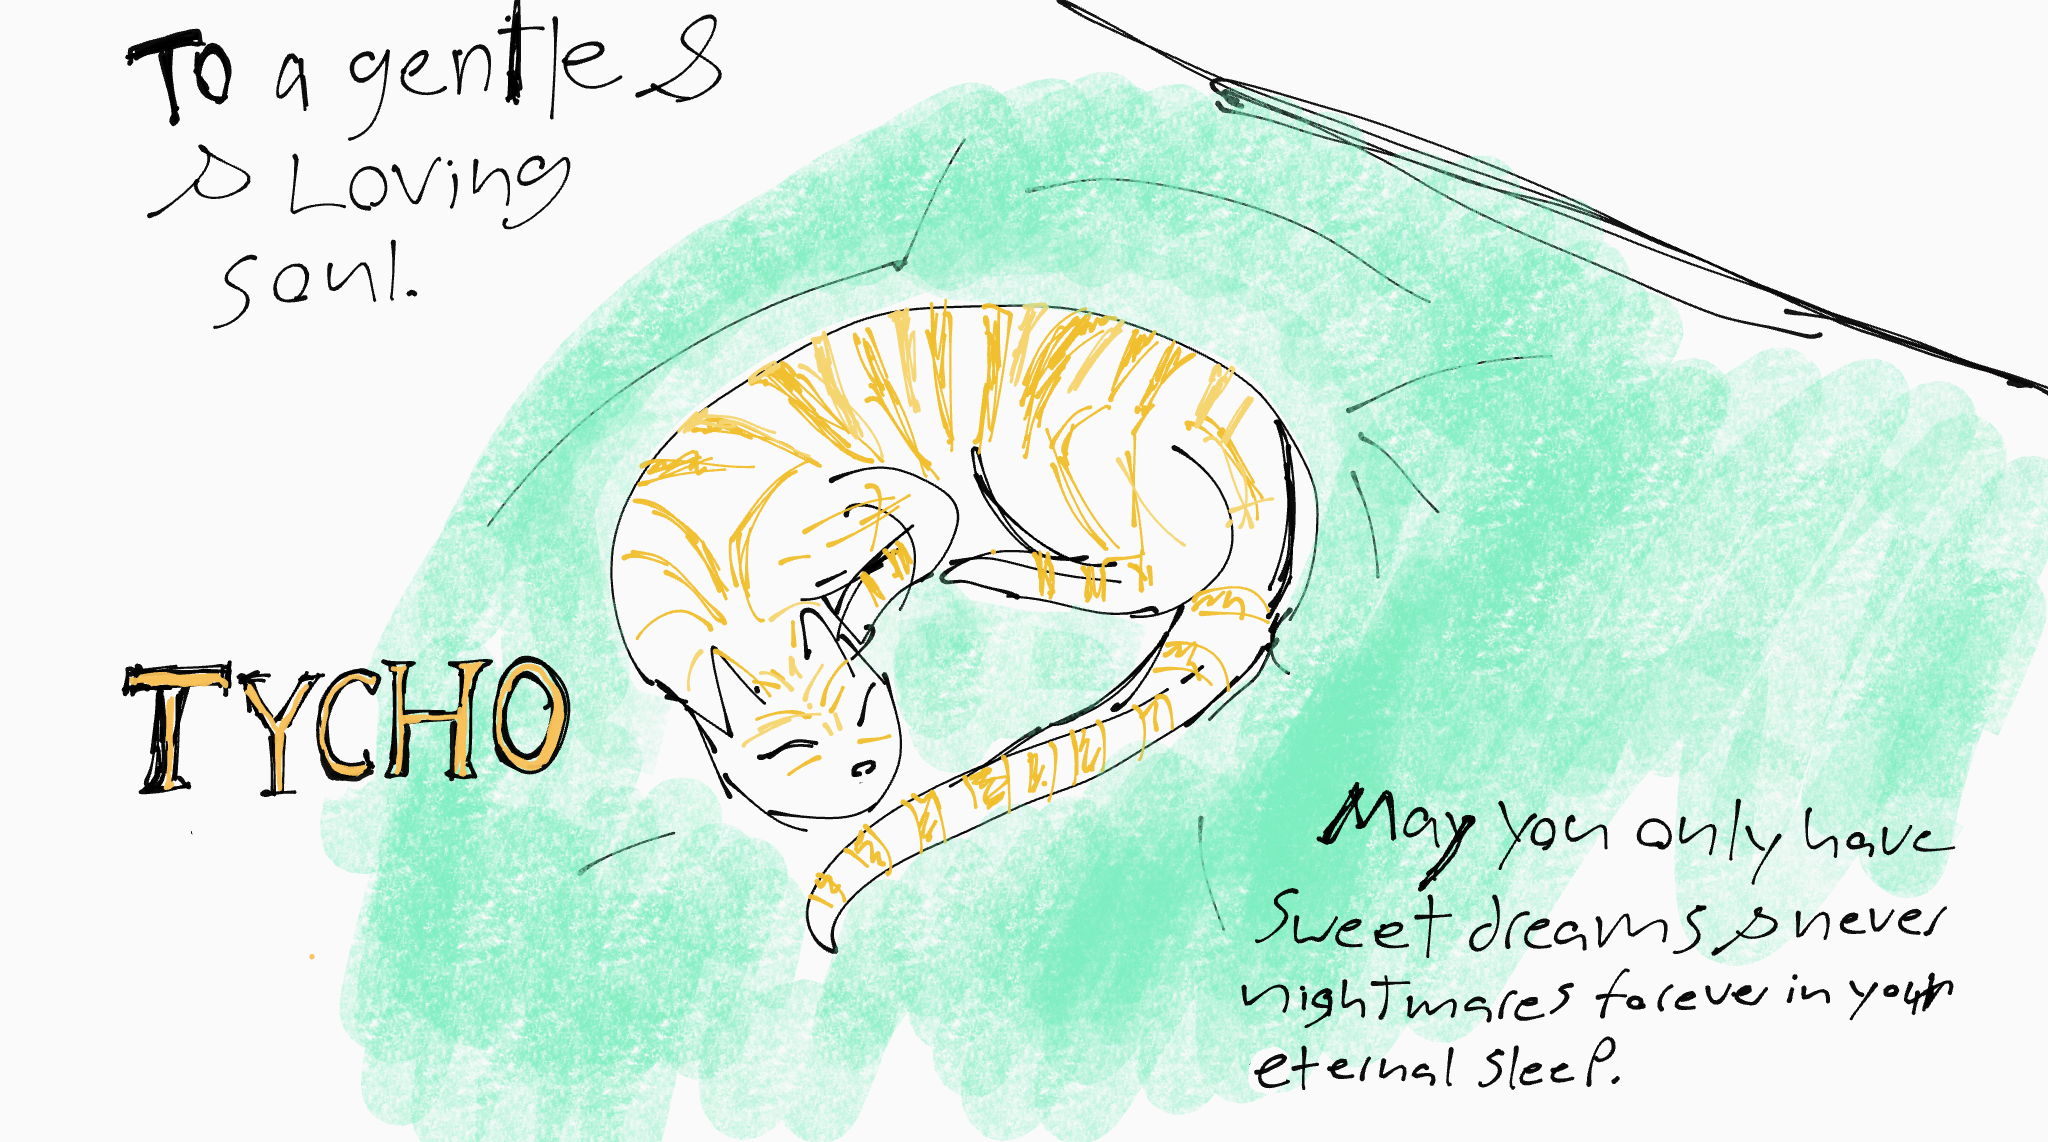 To a gentle &
& Loving
soul.
TYCHO
May you only have
Sweet dreams & never
nightmares forever in your
eternal sleep.